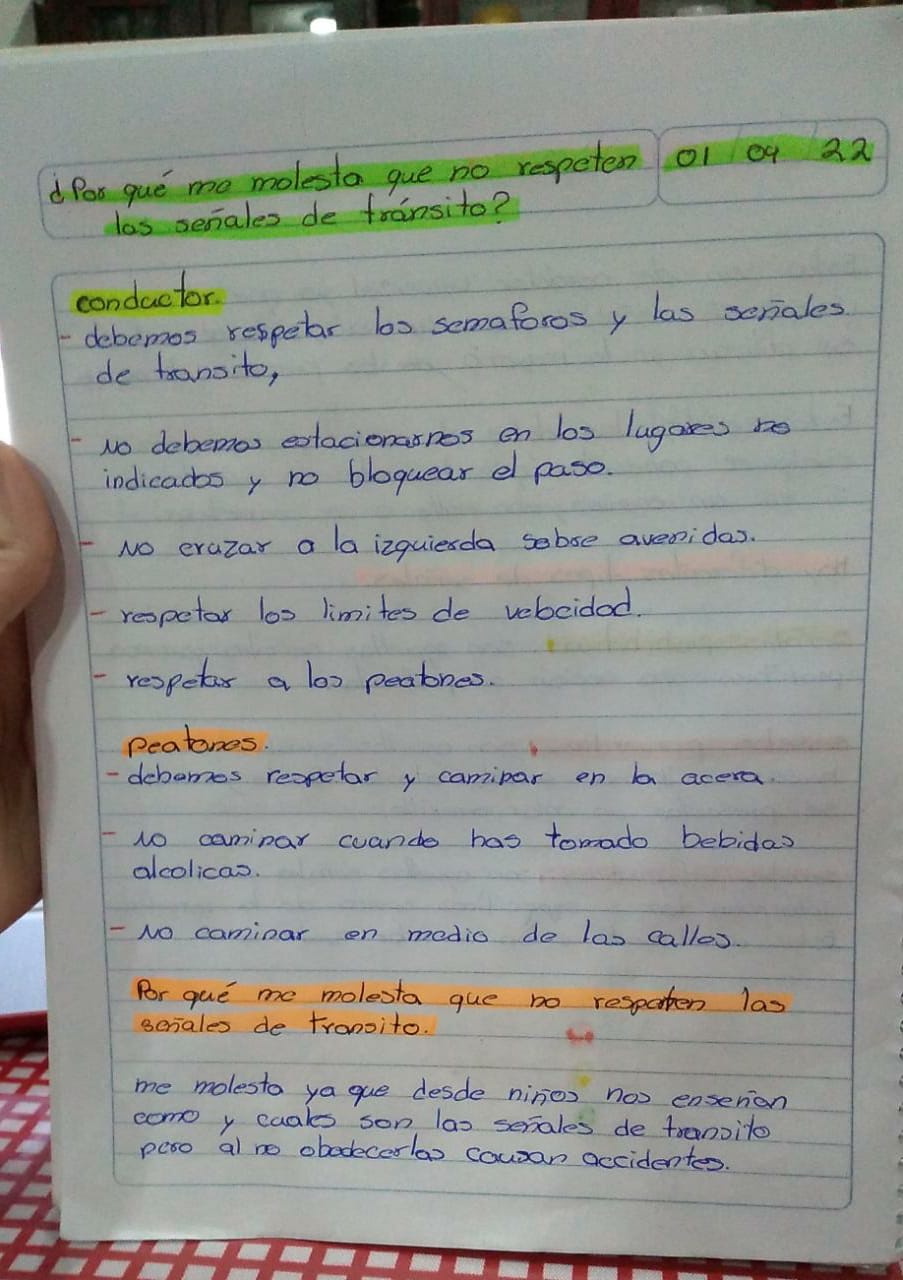 ¿Por qué me molesta que no respeten
las señales de tránsito?
01 04 22
conductor.
- debemos respetar los semaforos y las señales
de transito,
- No debemos estacionarnos en los lugares no
indicados y no bloquear el paso.
- No cruzar a la izquierda sobre avenidas.
- respetar los limites de velocidad.
- respetar a los peatones.
Peatones.
- debemos respetar y caminar en la acera.
- No caminar cuando has tomado bebidas
alcolicas.
- No caminar en medio de las calles.
Por qué me molesta que no respeten las
señales de transito.
me molesta ya que desde niños nos enseñan
como y cuales son las señales de transito
pero al no obedecerlas causan accidentes.